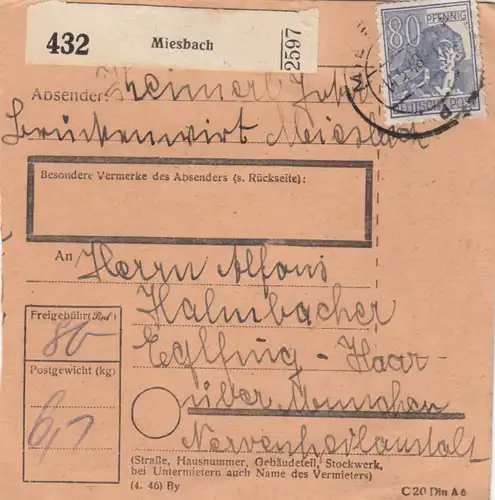 432 Miesbach 2597
80 PFENNIG
DEUTSCHE POST
Absender:
Brückenwirt Miesbach
Besondere Vermerke des Absenders (s. Rückseite):
An Herrn Alfons
Halmbacher
Eglfing - Haar
über München
Nervenheilanstalt
Freigebühr (Rpf)
80
Postgewicht (kg)
6,1
(Straße, Hausnummer, Gebäudeteil, Stockwerk,
bei Untermietern auch Name des Vermieters)
(4. 46) By
C 20 Din A 6